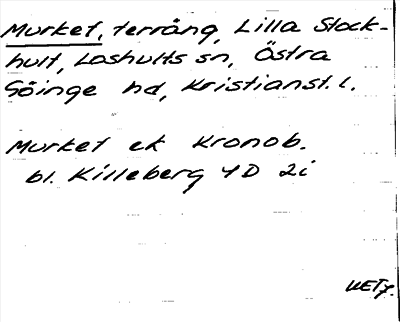 Murket, terräng, Lilla Stock-
hult, Loshults sn, Östra
Göinge hd, Kristianst. l.
Murket ek Kronob.
bl. Killeberg 4D 2i